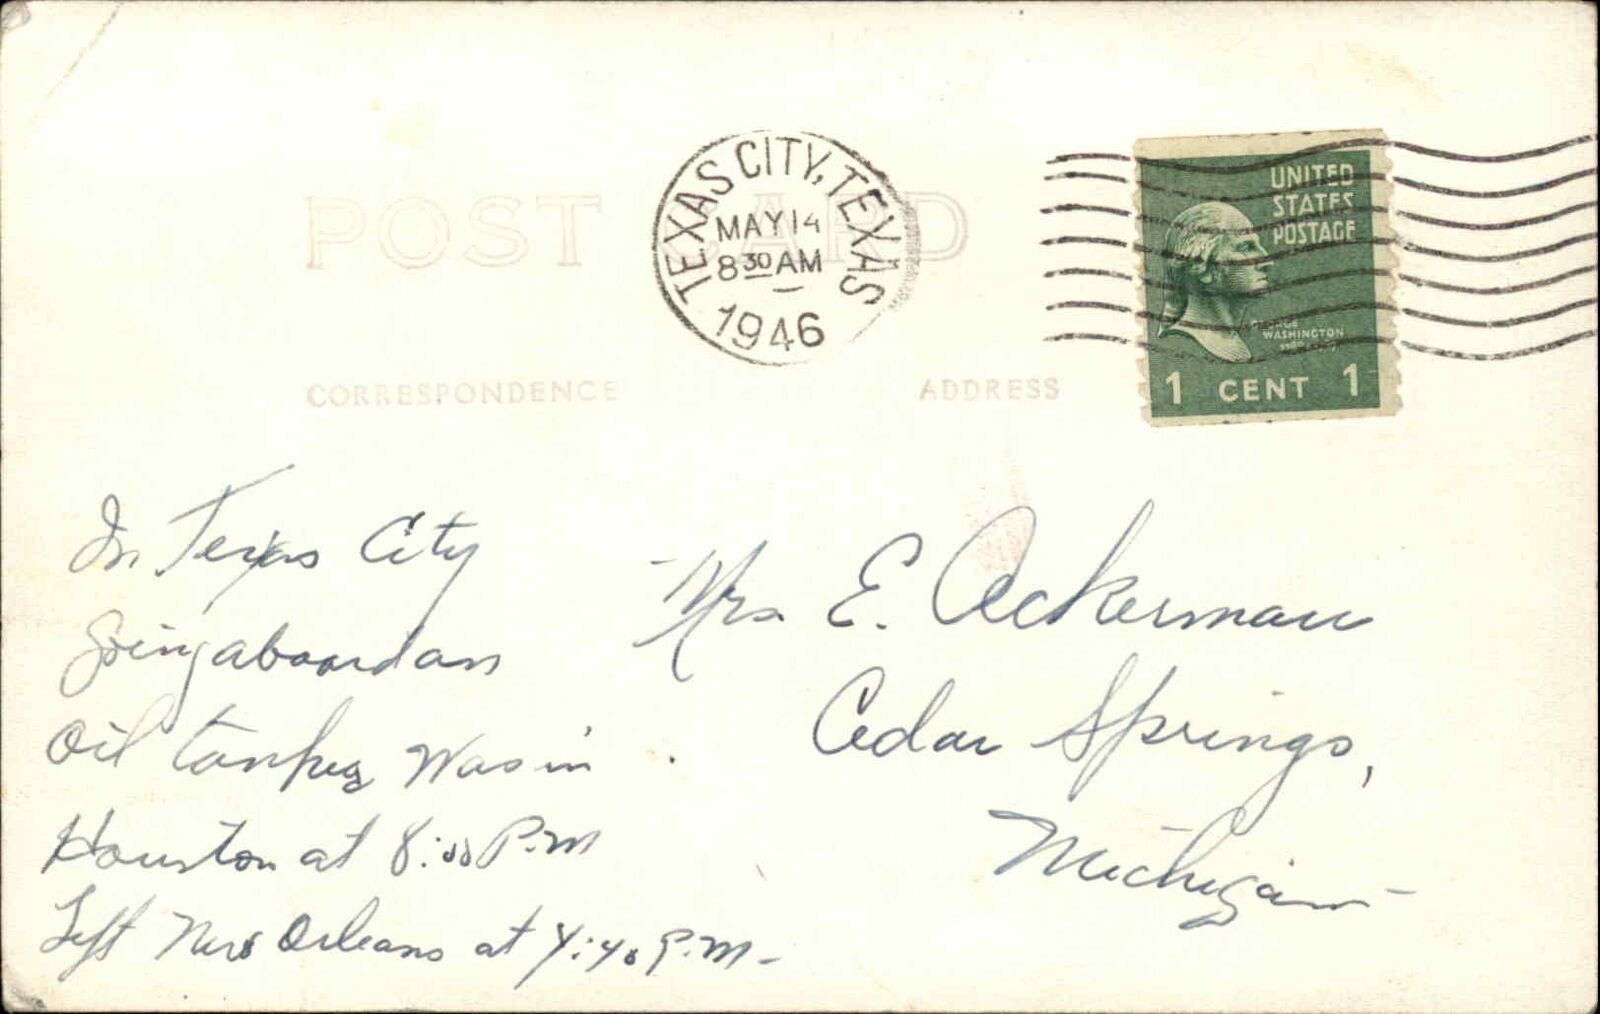 POST CARD
TEXAS CITY, TEXAS
MAY 14
8 30 AM
1946
UNITED
STATES
POSTAGE
GEORGE
WASHINGTON
1 CENT 1
CORRESPONDENCE
ADDRESS
In Texas City
Going aboard an
Oil tanker Was in
Houston at 8:00 P.M
Left New Orleans at 4:40 P.M.
Mrs E. Ackerman
Cedar Springs,
Michigan